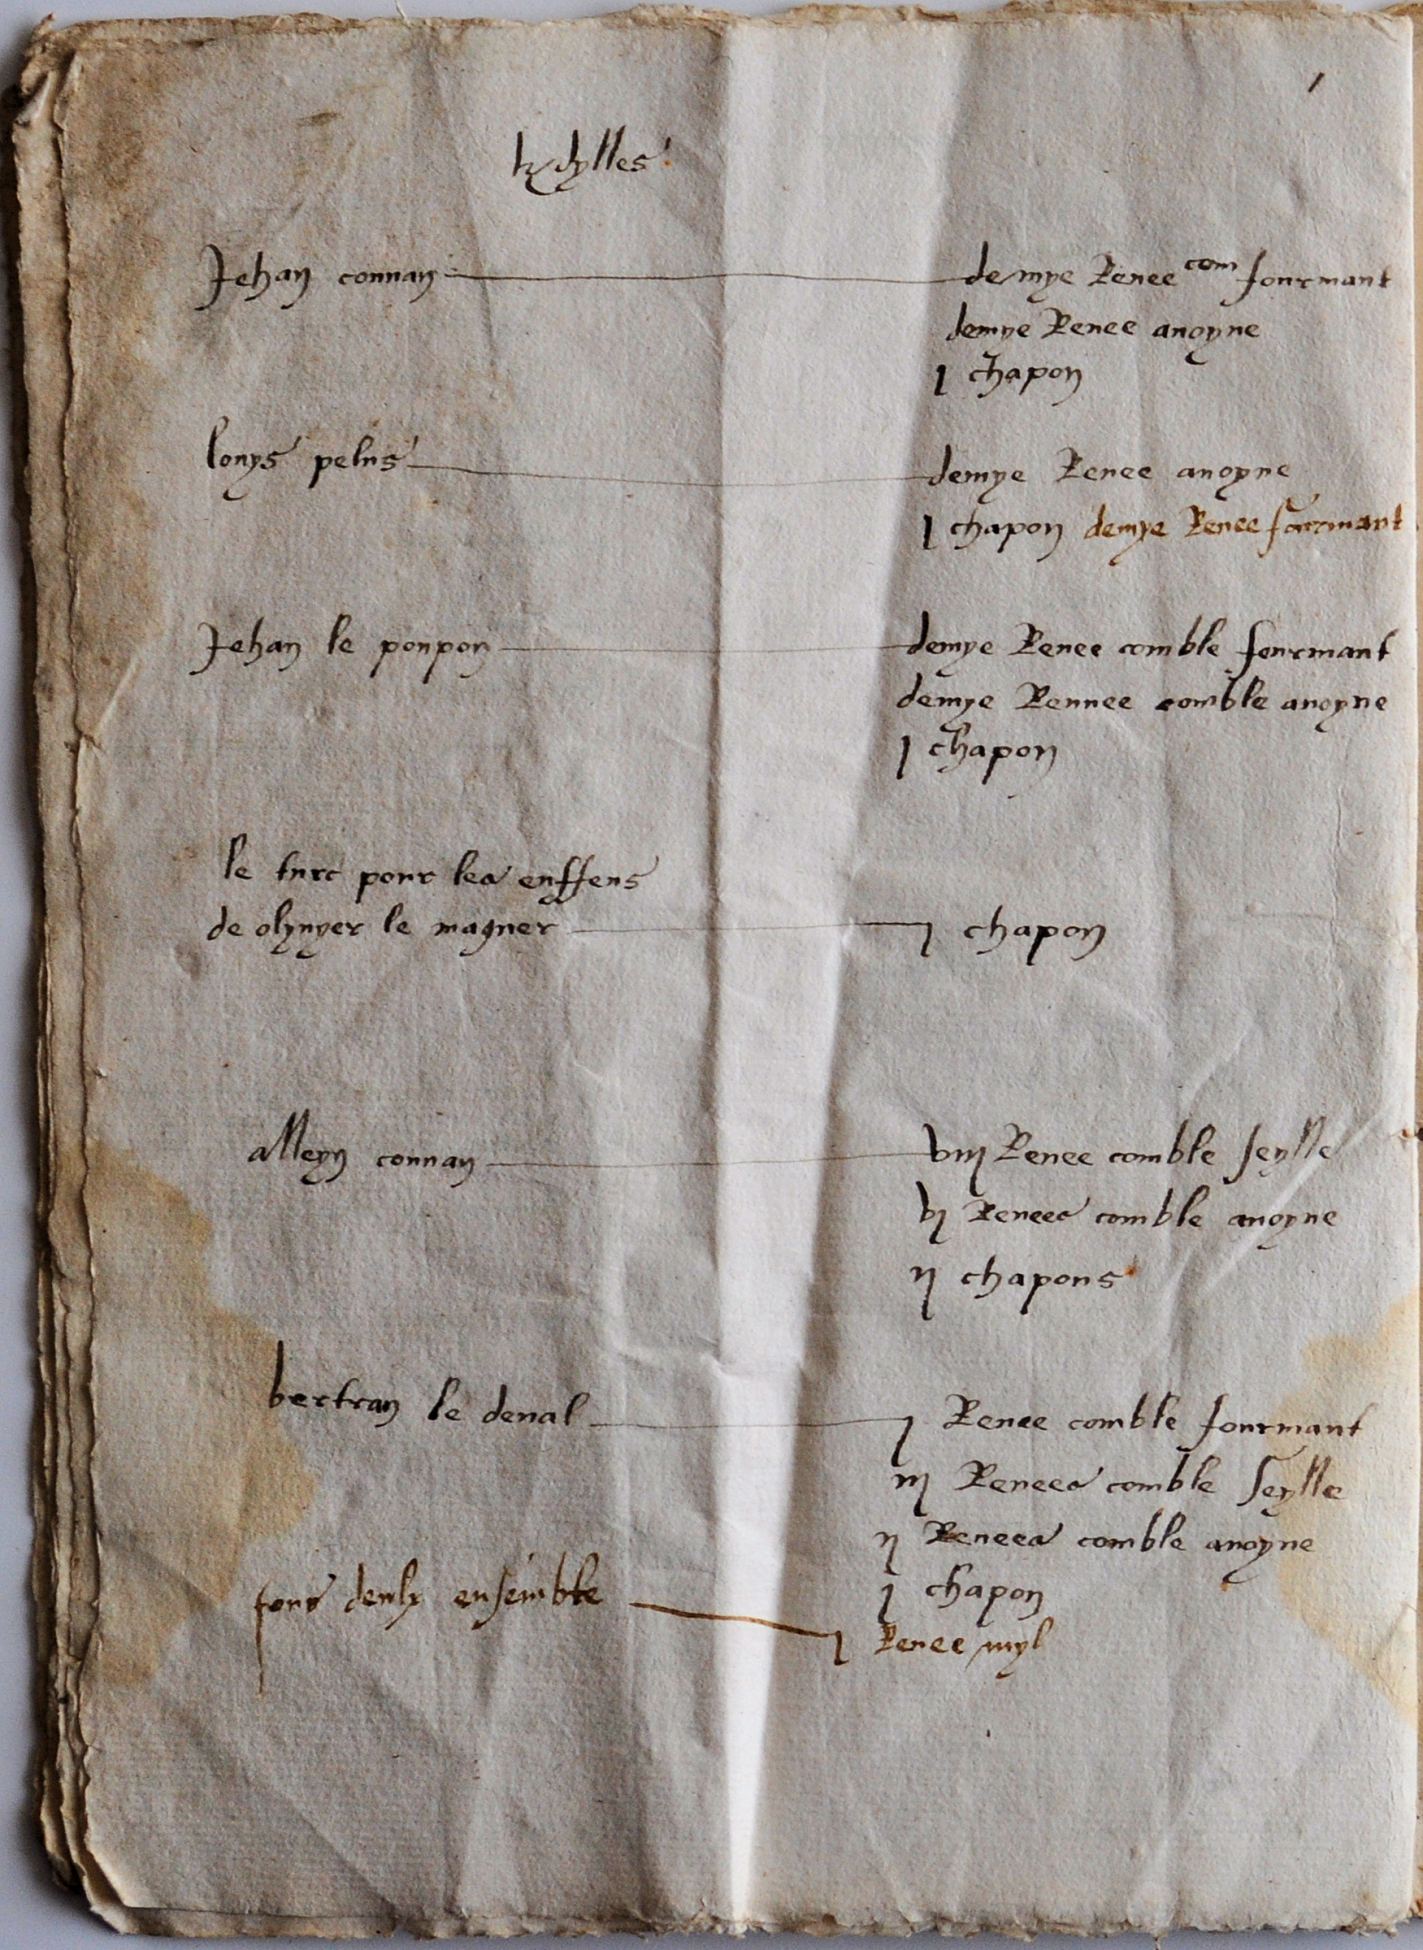 1
kdylles
Jehan connan demye Renee com fourmant
demye Renee avoyne
j chapon
louys pelus demye Renee avoyne
j chapon demye Renee fourmant
Jehan le poupon demye Renee comble fourmant
demye Rennee comble avoyne
j chapon
le turc pour les enffens
de olyvyer le magner j chapon
alleyn connan viij Renee comble seylle
vj Renees comble avoyne
ij chapons
bertran le deval j Renee comble fourmant
iij Renees comble seylle
ij Renees comble avoyne
j chapon
tous deulx ensemble j Renee myl